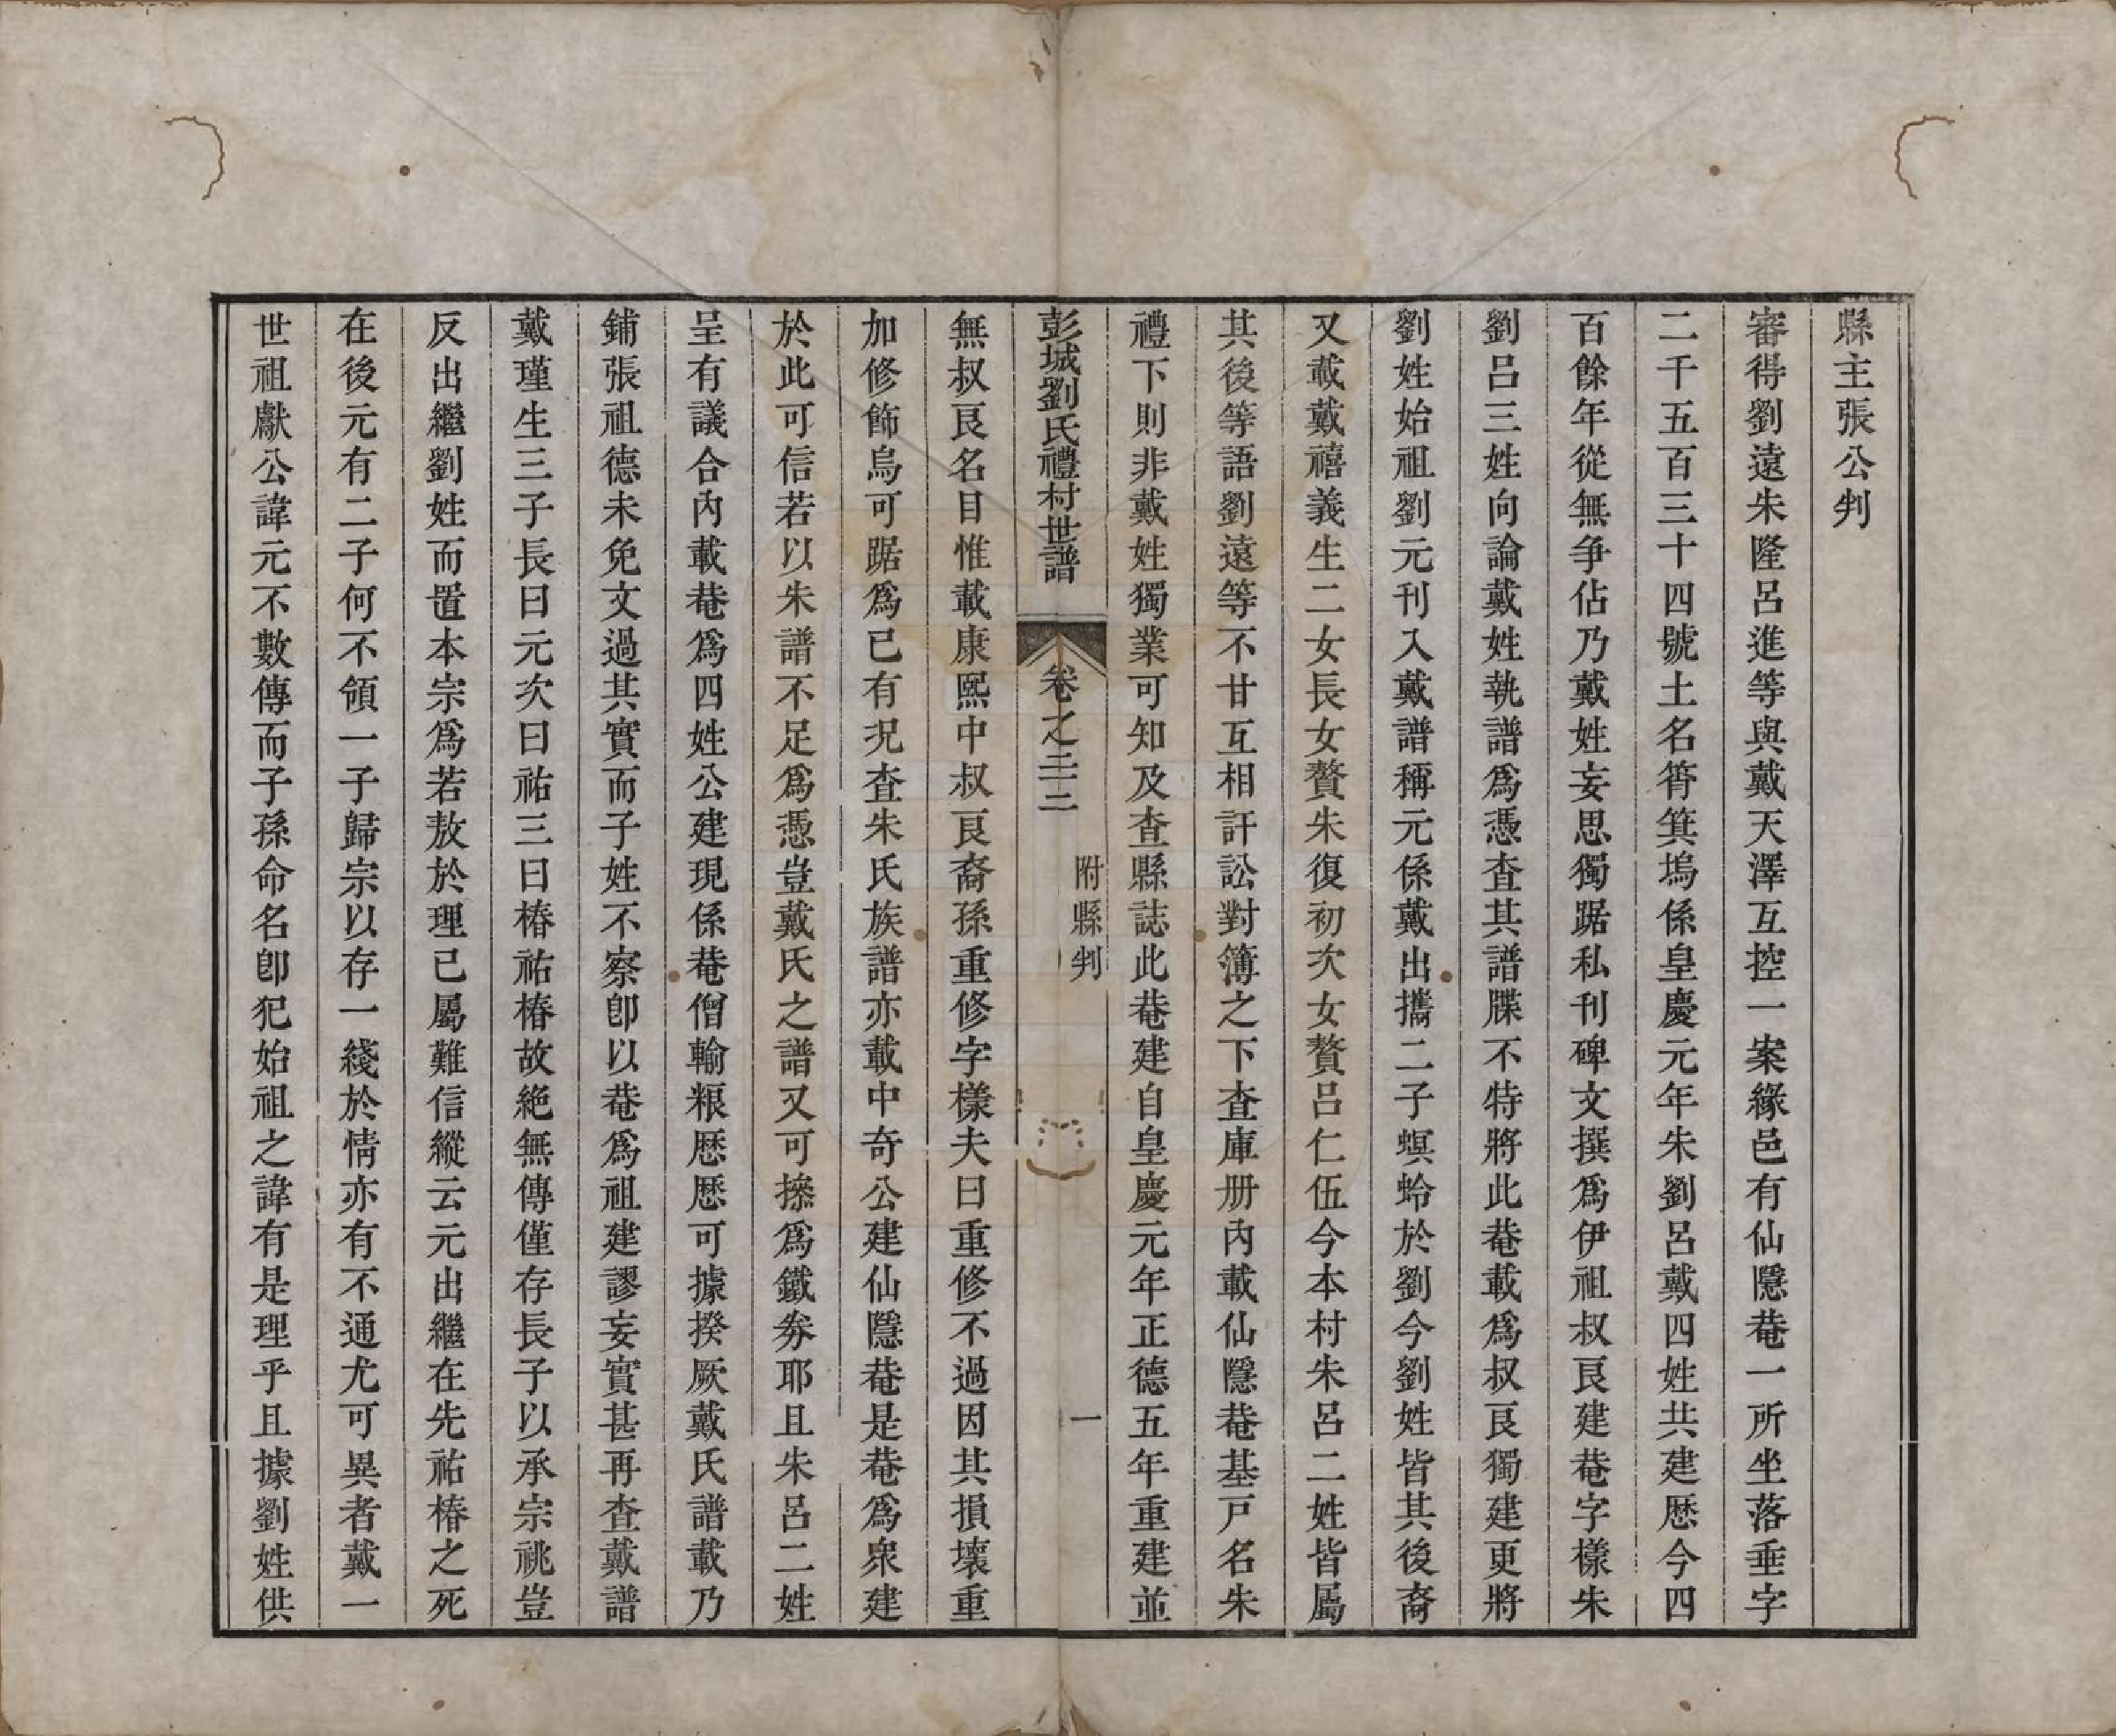 縣主張公判
審得劉遠朱隆呂進等與戴天澤互控一案緣邑有仙隱菴一所坐落垂字
二千五百三十四號土名筲箕塢係皇慶元年朱劉呂戴四姓共建歷今四
百餘年從無爭佔乃戴姓妄思獨踞私刊碑文撰爲伊祖叔良建菴字樣朱
劉呂三姓向論戴姓執譜爲憑查其譜牒不特將此菴載爲叔良獨建更將
劉姓始祖劉元刊入戴譜稱元係戴出攜二子螟蛉於劉今劉姓皆其後裔
又載戴禧義生二女長女贅朱復初次女贅呂仁伍今本村朱呂二姓皆屬
其後等語劉遠等不甘互相訐訟對簿之下查庫册內載仙隱菴基戸名朱
禮下則非戴姓獨業可知及查縣誌此菴建自皇慶元年正德五年重建並
彭城劉氏禮村世譜
卷之二三
附縣判
一
無叔良名目惟載康熙中叔良裔孫重修字樣夫曰重修不過因其損壞重
加修飾烏可踞爲已有況查朱氏族譜亦載中奇公建仙隱菴是菴爲衆建
於此可信若以朱譜不足爲憑豈戴氏之譜又可㨿爲鐵券耶且朱呂二姓
呈有議合內載菴爲四姓公建現係菴僧輸粮歷歷可據揆厥戴氏譜載乃
鋪張祖德未免文過其實而子姓不察卽以菴爲祖建謬妄實甚再查戴譜
戴瑾生三子長曰元次曰祐三曰椿祐椿故絕無傳僅存長子以承宗祧豈
反出繼劉姓而置本宗爲若敖於理已屬難信縱云元出繼在先祐椿之死
在後元有二子何不領一子歸宗以存一綫於情亦有不通尤可異者戴一
世祖獻公諱元不數傳而子孫命名卽犯始祖之諱有是理乎且據劉姓供